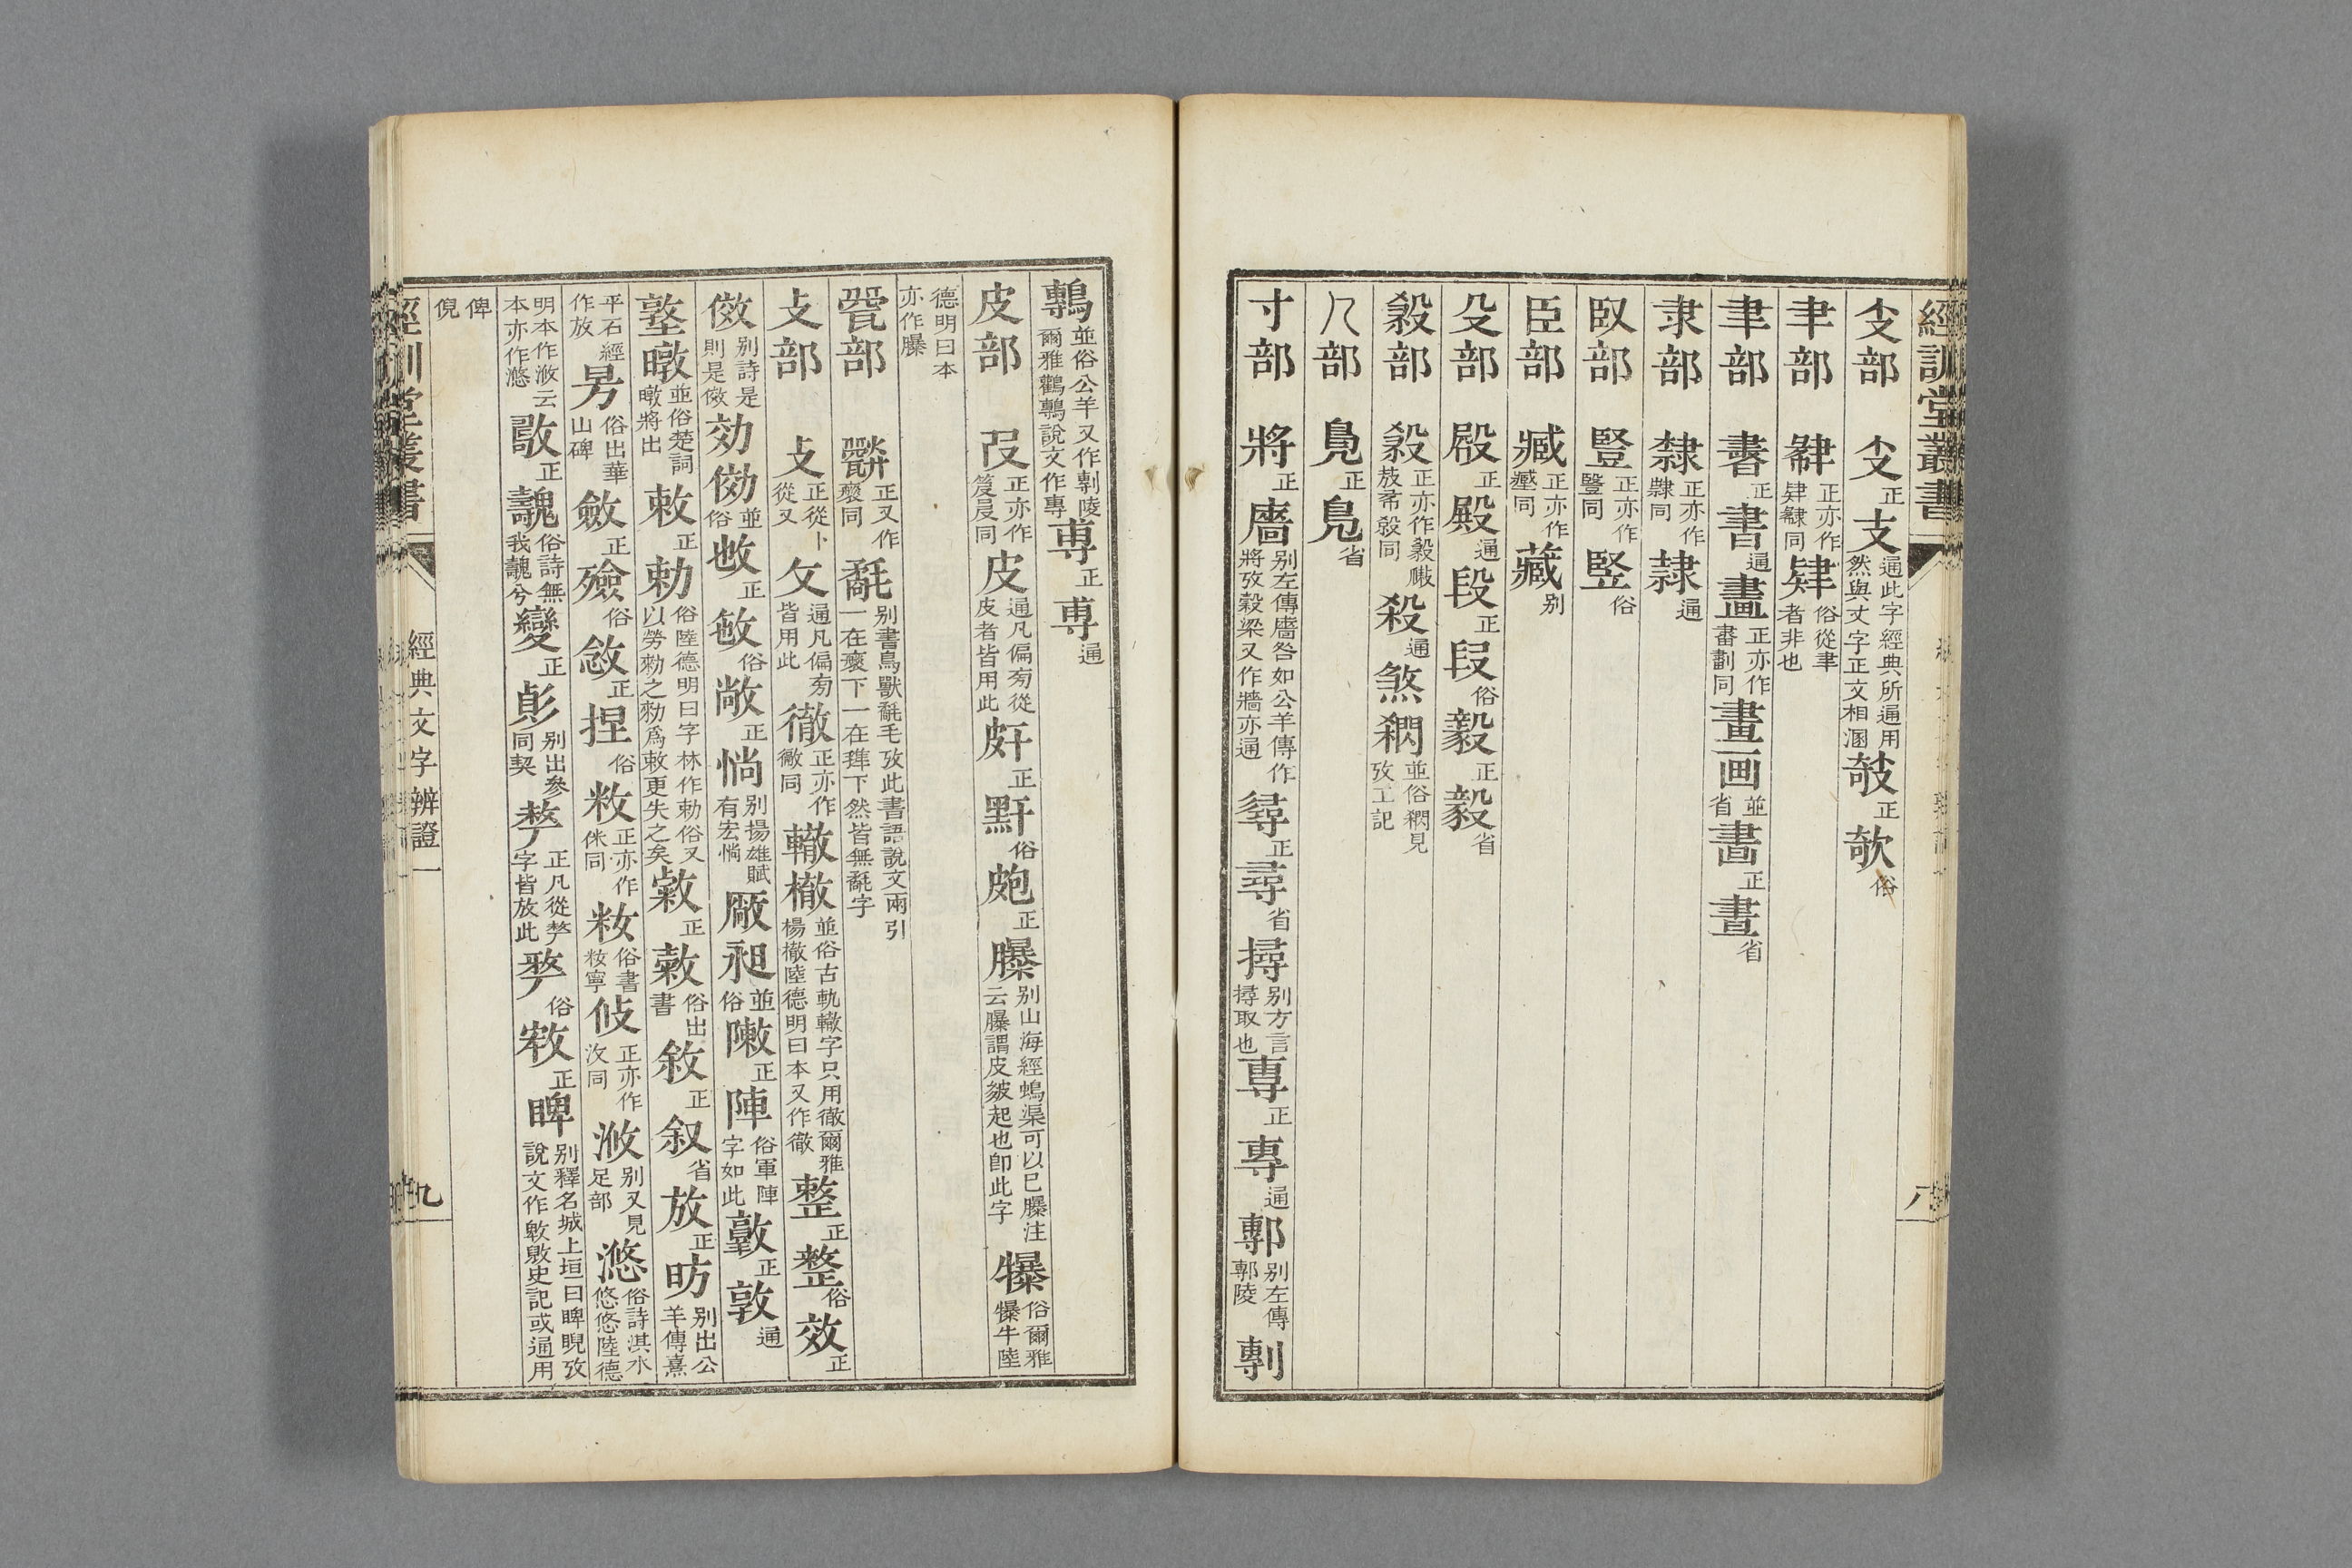 經訓堂叢書
八
支部 支正支通此字經典所通用然與丈字正文相溷攲正欹俗
𦘒部 肄正亦作肆同肄俗從聿者非也
聿部 書正書通畫正亦作劃同畫画並省晝正晝省
隶部 隸正亦作隸同隷通
臤部 豎正亦作豎同竪俗
臣部 臧正亦作同藏别
殳部 殿正殿通段正叚俗毅正毅省
殺部 殺正亦作同殺通煞並俗見攷工記
𠘧部 鳧正鳬省
寸部 將正廧别左傳廧咎如公羊傳作將攷穀梁又作牆亦通𢒫正尋省撏别方言撏取也專正專通鄟别左傳鄟陵剸
鷒並俗公羊又作剸陵爾雅鸛鷒說文作專尃正尃通
皮部 正亦作同皮通凡偏旁從皮者皆用此皯正䵟俗皰正㿺别山海經䳋渠可以已㿺注云㿺謂皮皴起也卽此字犦俗爾雅犦牛陸
德明曰本亦作㿺
㼱部 正又作同氄别書鳥獸氄毛攷此書語說文兩引一在下一在下然皆無氄字
攴部 攴正從卜從又攵通凡偏旁皆用此徹正亦作同轍撤並俗古軌轍字只用徹爾雅楊撤陸德明曰本又作徹整正整俗效正
傚别詩是則是傚効俲並俗敀正敏俗敞正惝别揚雄賦有宏惝厰昶並俗敶正陣俗軍陣字如此𢾭正敦通
墪暾並俗楚詞暾將出敕正勅俗陸德明曰字林作勅俗又以勞勑之勑爲敕更失之矣敹正敹俗出書敘正叙省放正昉别出公羊傳熹
平石經作放昘俗出華山碑斂正殮俗敜正揑俗敉正亦作侎同籹俗書籹寧攸正亦作汥同浟别又見足部㴋俗詩淇水悠悠陸德
明本作浟云本亦作㴋敿正魗俗詩無我魗兮變正彭别出參同契𠩺正凡從𠩺字皆放此𠩺俗敤正睥别釋名城上垣曰睥睨攷說文作敤敫史記或通用
俾倪
經訓堂叢書
經典文字辨證一
九